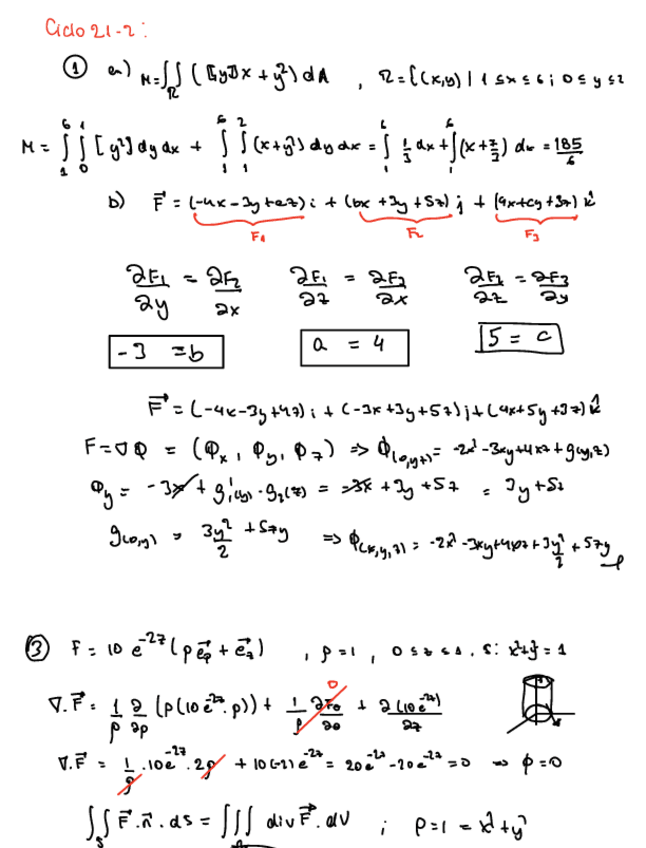 Ciclo 21-2:
① a) M=∬_R (⟦y⟧x + y²) dA , R={(x,y) | 1 ≤ x ≤ 6 ; 0 ≤ y ≤ 2
M = ∫₁⁶ ∫₀¹ [y²] dy dx + ∫₁⁶ ∫₁² (x+y²) dy dx = ∫₁⁶ 1/3 dx + ∫₁⁶ (x+7/3) dx = 185/6
b) F⃗ = (-4x-3y+az) i + (bx+3y+5z) j + (4x+cy+3z) k̂
F₁ F₂ F₃
∂F₁/∂y = ∂F₂/∂x ∂F₁/∂z = ∂F₃/∂x ∂F₂/∂z = ∂F₃/∂y
-3 = b a = 4 5 = c
F⃗ = (-4x-3y+4z) i + (-3x+3y+5z) j + (4x+5y+3z) k̂
F = ∇φ = (φₓ, φ_y, φ_z) ⇒ = -2x² - 3xy + 4xz + g(y,z)
φ_y = -3x + = -3x + 3y + 5z = 3y + 5z
= 3y²/2 + 5zy ⇒ φ(x,y,z) = -2x² - 3xy + 4xz + 3y²/2 + 5zy
③ F = 10 e^{-2z} (ρ e⃗_ρ + e⃗_z) , ρ=1 , 0 ≤ z ≤ 1 , S: x²+y² = 1
∇.F⃗ = 1/ρ ∂/∂ρ (ρ(10 e^{-2z}.ρ)) + 1/ρ ∂F_θ/∂θ 0 + ∂(10e^{-2z})/∂z
∇.F⃗ = 1/ρ .10e^{-2z}.2ρ + 10(-2) e^{-2z} = 20e^{-2z} - 20e^{-2z} = 0 ⇒ φ=0
∬_S F⃗.n⃗.ds = ∭ div F⃗.dV ; ρ=1 = x²+y²